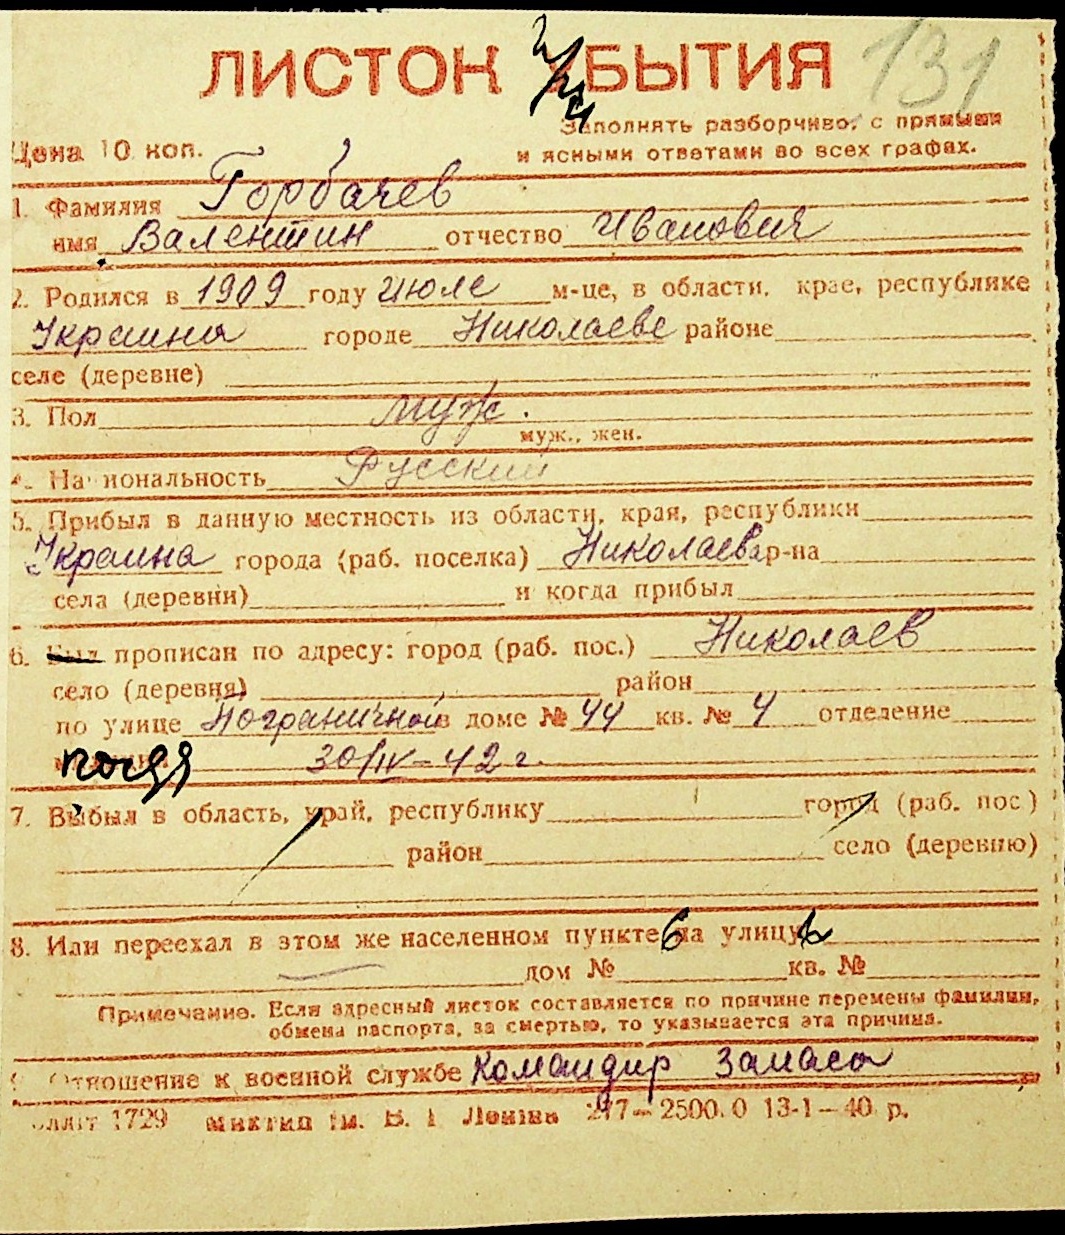 ЛИСТОК УБЫТИЯ 131
Заполнять разборчиво, с прямыми
Цена 10 коп. и ясными ответами во всех графах.
1. Фамилия Горбачев
имя Валентин отчество Иванович
2. Родился в 1909 году июле м-це, в области, крае, республике
Украина городе Николаеве районе
селе (деревне)
3. Пол муж.
муж., жен.
4. Национальность Русский
5. Прибыл в данную местность из области, края, республики
Украина города (раб. поселка) Николаева р-на
села (деревни) и когда прибыл
6. Был прописан по адресу: город (раб. пос.) Николаев
село (деревня) район
по улице Пограничной в доме № 44 кв. № 4 отделение
30/IV-42 г.
7. Выбыл в область, край, республику город (раб. пос)
район село (деревню)
8. Или переехал в этом же населенном пункте на улицу
дом № кв. №
Примечание. Если адресный листок составляется по причине перемены фамилии,
обмена паспорта, за смертью, то указывается эта причина.
Отношение к военной службе Командир запаса
1729 Ленина 217—2500.0 13-1—40 р.